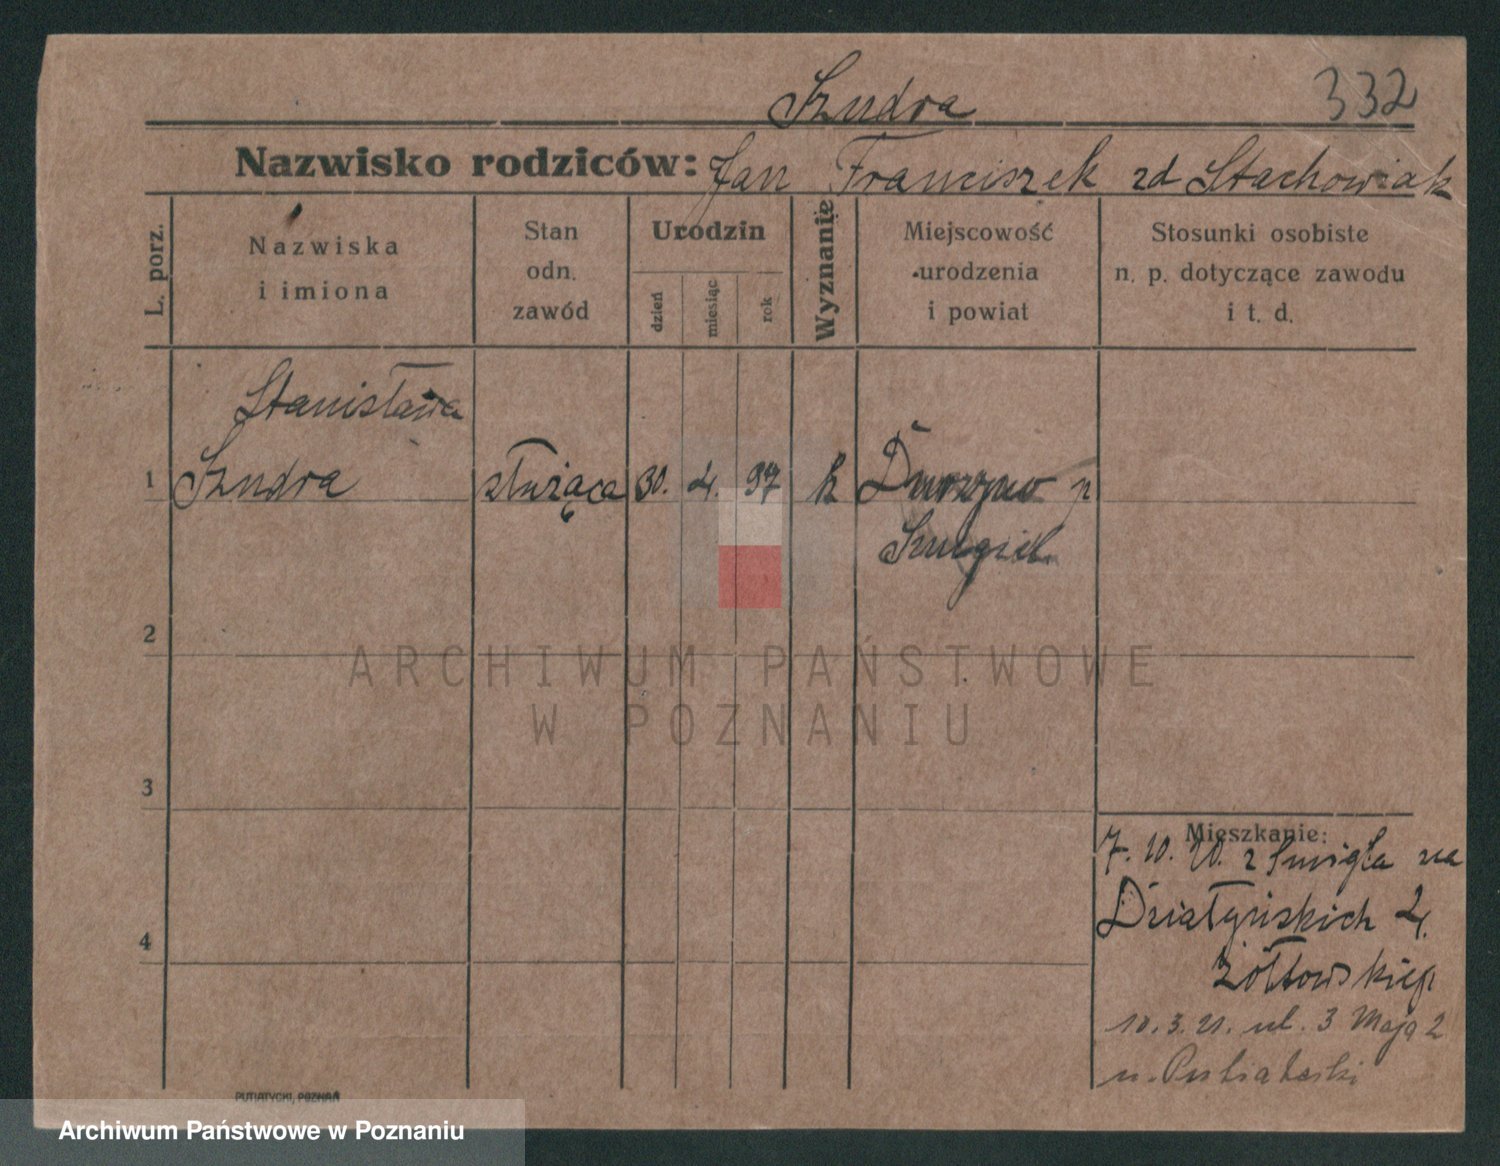 332
Szudra
Nazwisko rodziców: Jan Franciszek zd Stachowiak
L. porz.
Nazwiska
i imiona
Stan
odn.
zawód
Urodzin
dzień
miesiąc
rok
Wyznanie
Miejscowość
urodzenia
i powiat
Stosunki osobiste
n. p. dotyczące zawodu
i t. d.
Stanisława
1 Szudra służąca 30. 4. 97 k
2
3
4
ARCHIWUM PAŃSTWOWE
W POZNANIU
Mieszkanie:
7. 10. 20. z Śmigla na
Działyńskich 4.
Żółtowskiego
10. 3. 21. ul. 3 Maja 2
PUTIATYCKI, POZNAŃ
Archiwum Państwowe w Poznaniu